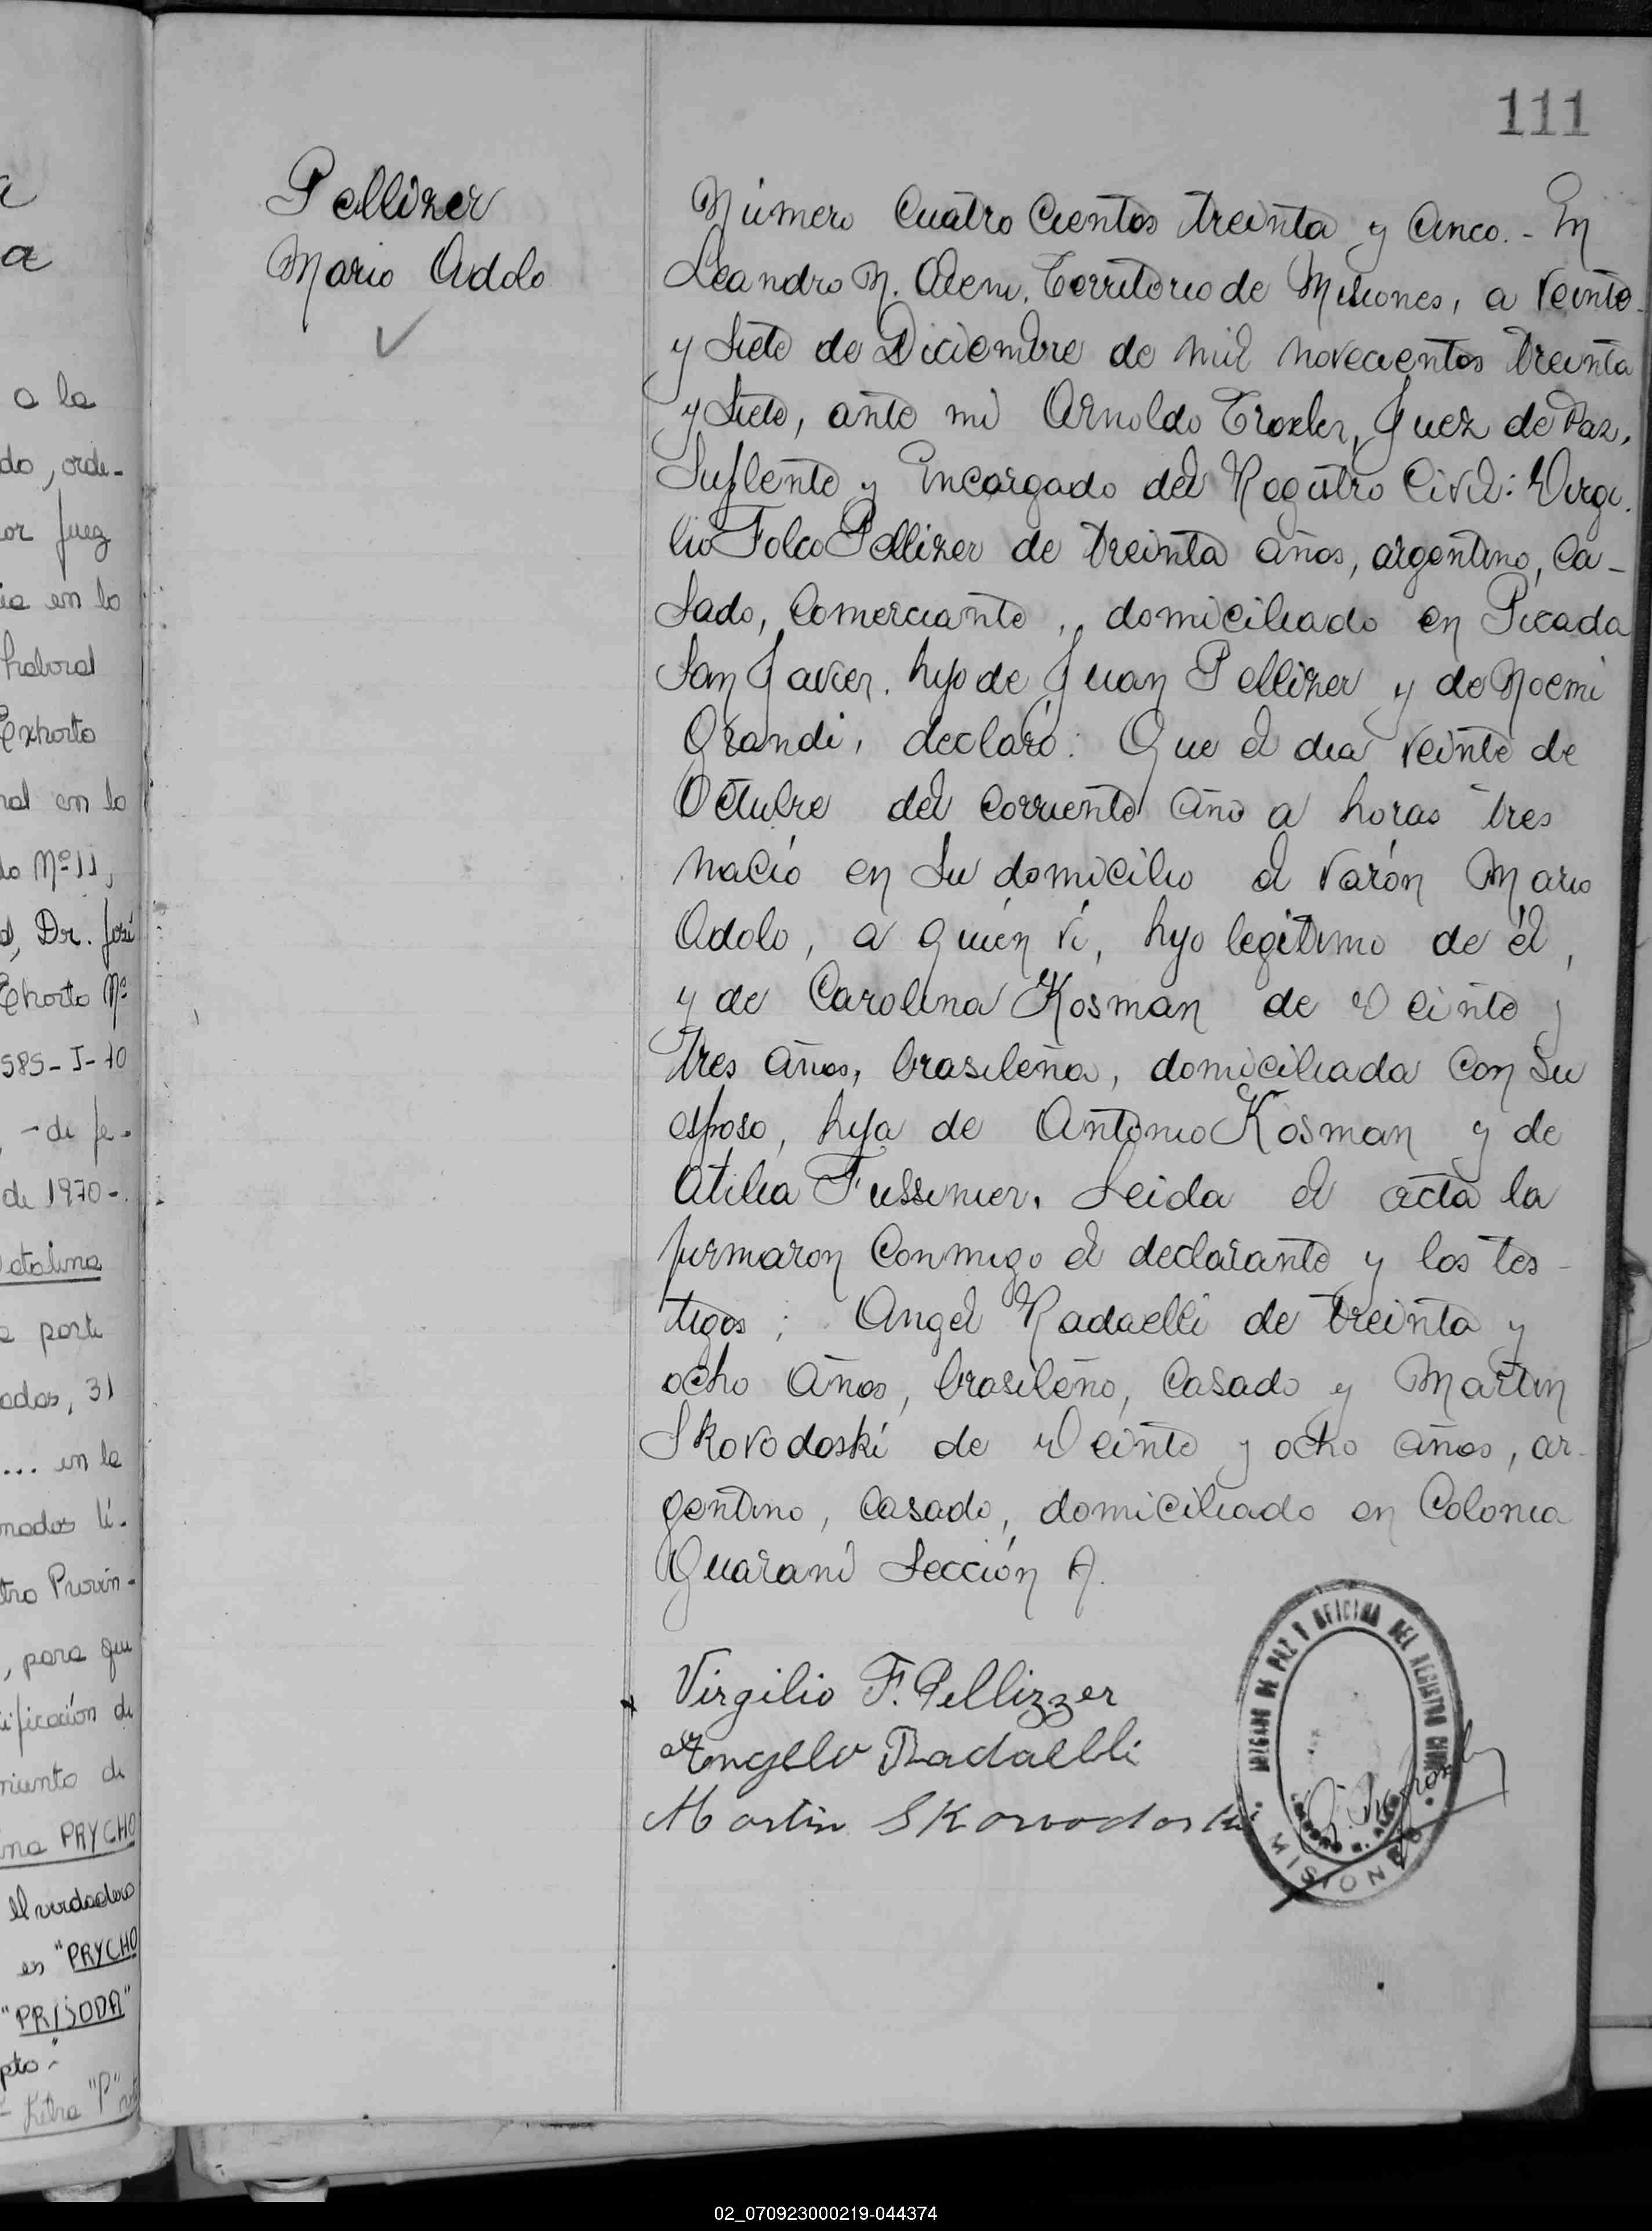 111
Pellizer
Mario Adolo
Número Cuatro Cientos treinta y Cinco.- En
Leandro N. Alem, Territorio de Misiones, a Veinte
y Siete de Diciembre de mil novecientos treinta
y Siete, ante mi Arnoldo Troxler, Juez de Paz,
Suplente y Encargado del Registro Civil: Virgi-
lio Folco Pellizer de treinta años, argentino, Ca-
sado, Comerciante, domiciliado en Picada
San Javier, hijo de Juan Pellizer y de Noemi
Grandi, declaró: Que el dia veinte de
Octubre del Corriente año a horas tres
nació en Su domicilio el Varón Mario
Adolo, a quién vi, hijo legitimo de él,
y de Carolina Kosman de Veinte y
tres años, brasileña, domiciliada Con Su
esposo, hija de Antonio Kosman y de
Atilia Fussinier. Leida el acta la
firmaron Conmigo el declarante y los tes-
tigos; Angel Radaelli de treinta y
ocho años, brasileño, Casado y Martin
Skovodoski de Veinte y ocho años, ar-
gentino, Casado, domiciliado en Colonia
Guarani Sección A.
Virgilio F. Pellizzer
Angelo Radaelli
Martin Skowodoski
JUZGADO DE PAZ Y OFICINA DEL REGISTRO CIVIL
MISIONES
a
a
a la
do, orde-
or Juez
ia en lo
haboral
Exhorto
nal en lo
do Nº 11,
d, Dr. José
Exhorto Nº
585-I-70
- de fe-
de 1970-.
Catalina
a parte
ados, 31
... en la
nados li-
tro Provin-
, para que
tificación de
miento de
ina PRYCHO
el verdadero
es "PRYCHO
"PRISODA"
pto.-
Letra "P"
02_070923000219-044374